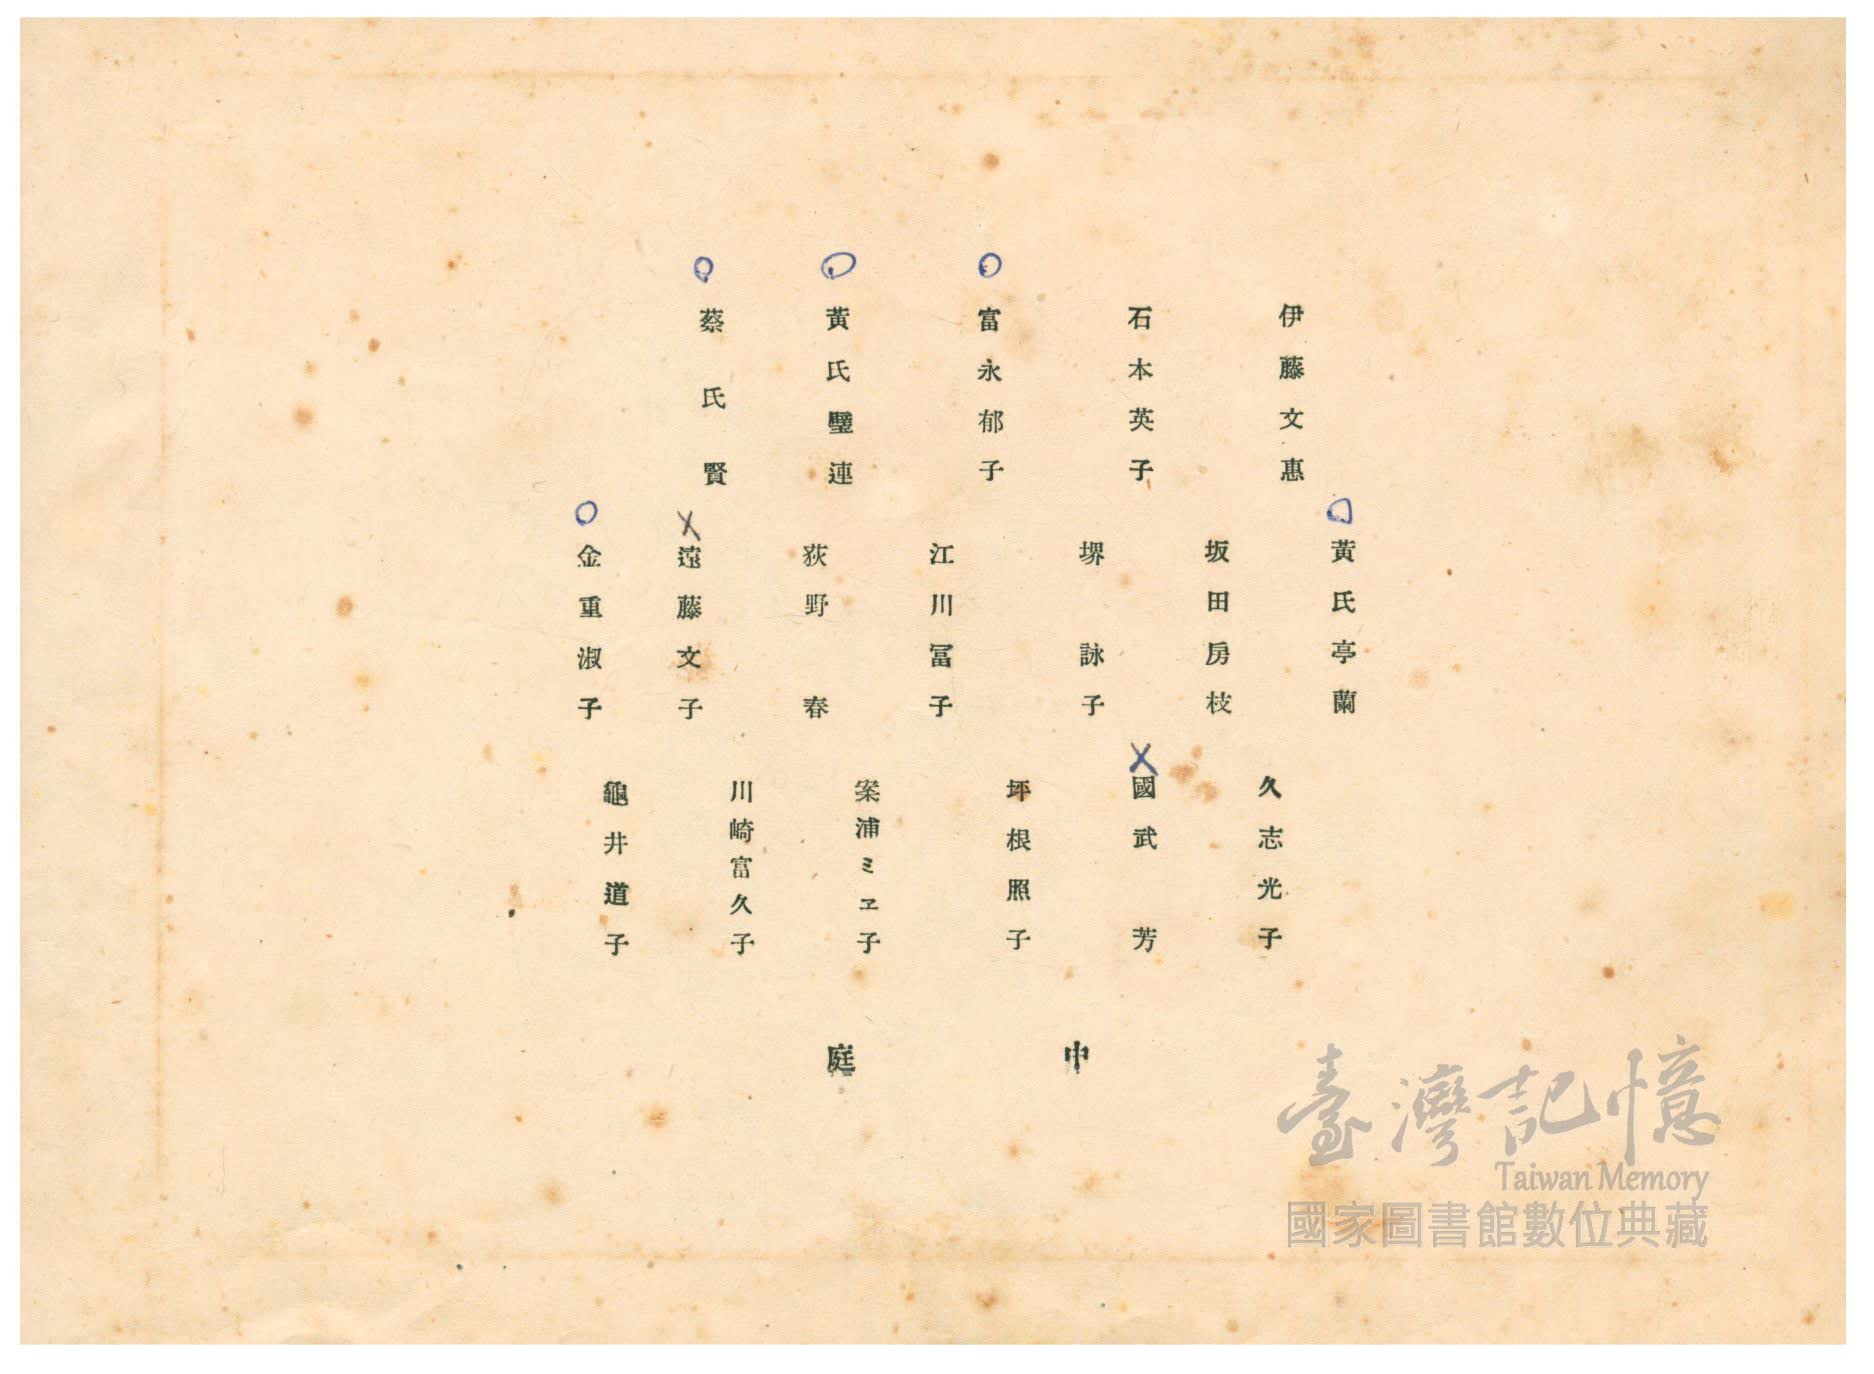 伊藤文惠
石本英子
富永郁子
黃氏璧連
蔡氏賢
黃氏亭蘭
坂田房枝
堺詠子
江川冨子
荻野春
遠藤文子
金重淑子
久志光子
國武芳
坪根照子
案浦ミヱ子
川崎富久子
龜井道子
中庭
臺灣記憶
Taiwan Memory
國家圖書館數位典藏